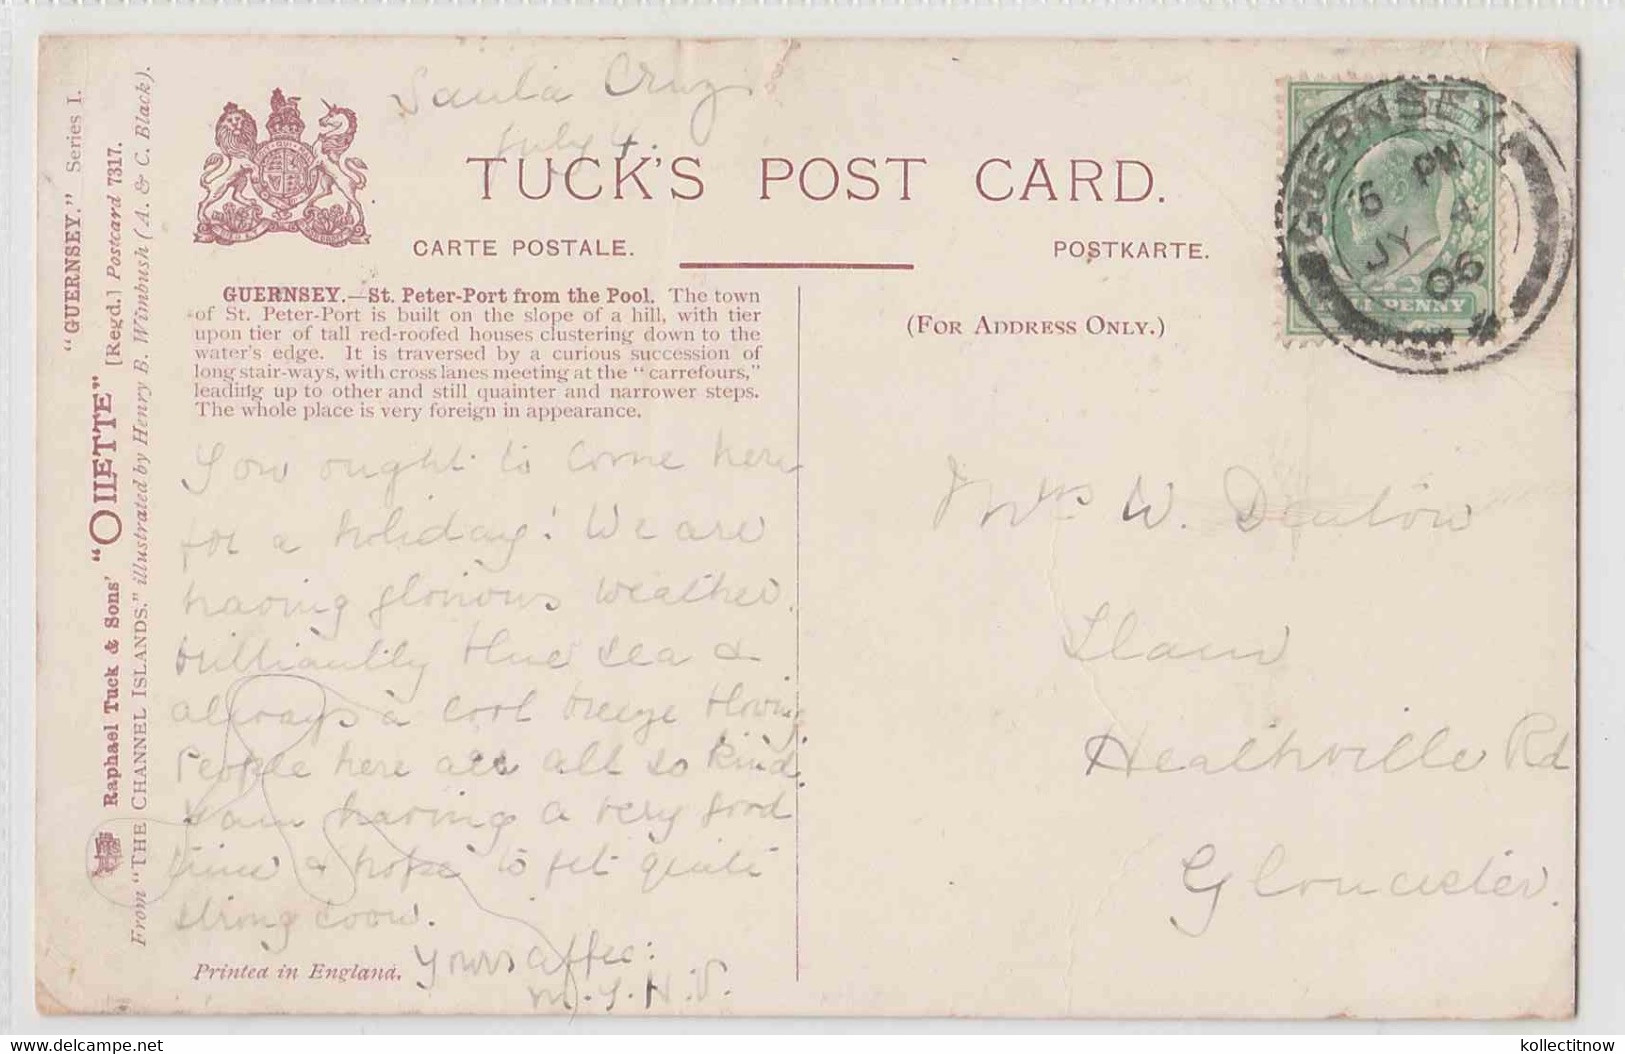 Santa Cruz
July 4.
TUCK'S POST CARD.
CARTE POSTALE.
POSTKARTE.
"GUERNSEY." Series I.
Raphael Tuck & Sons' "OILETTE" [Regd.] Postcard 7317.
From "THE CHANNEL ISLANDS," illustrated by Henry B. Wimbush (A. & C. Black).
GUERNSEY.—St. Peter-Port from the Pool. The town
of St. Peter-Port is built on the slope of a hill, with tier
upon tier of tall red-roofed houses clustering down to the
water's edge. It is traversed by a curious succession of
long stair-ways, with cross lanes meeting at the "carrefours,"
leading up to other and still quainter and narrower steps.
The whole place is very foreign in appearance.
You ought to come here
for a holiday! We are
having glorious weather
brilliantly blue sea &
always a cool breeze blowing
People here are all so kind.
I am having a very good
time & hope to get quite
strong soon.
Yours affec:
M.Y.N.V.
Printed in England.
(FOR ADDRESS ONLY.)
GUERNSEY
6 PM
JY 4
06
HALFPENNY
Mrs W. Denlow
Heathville Rd
Gloucester.
kollectitnow